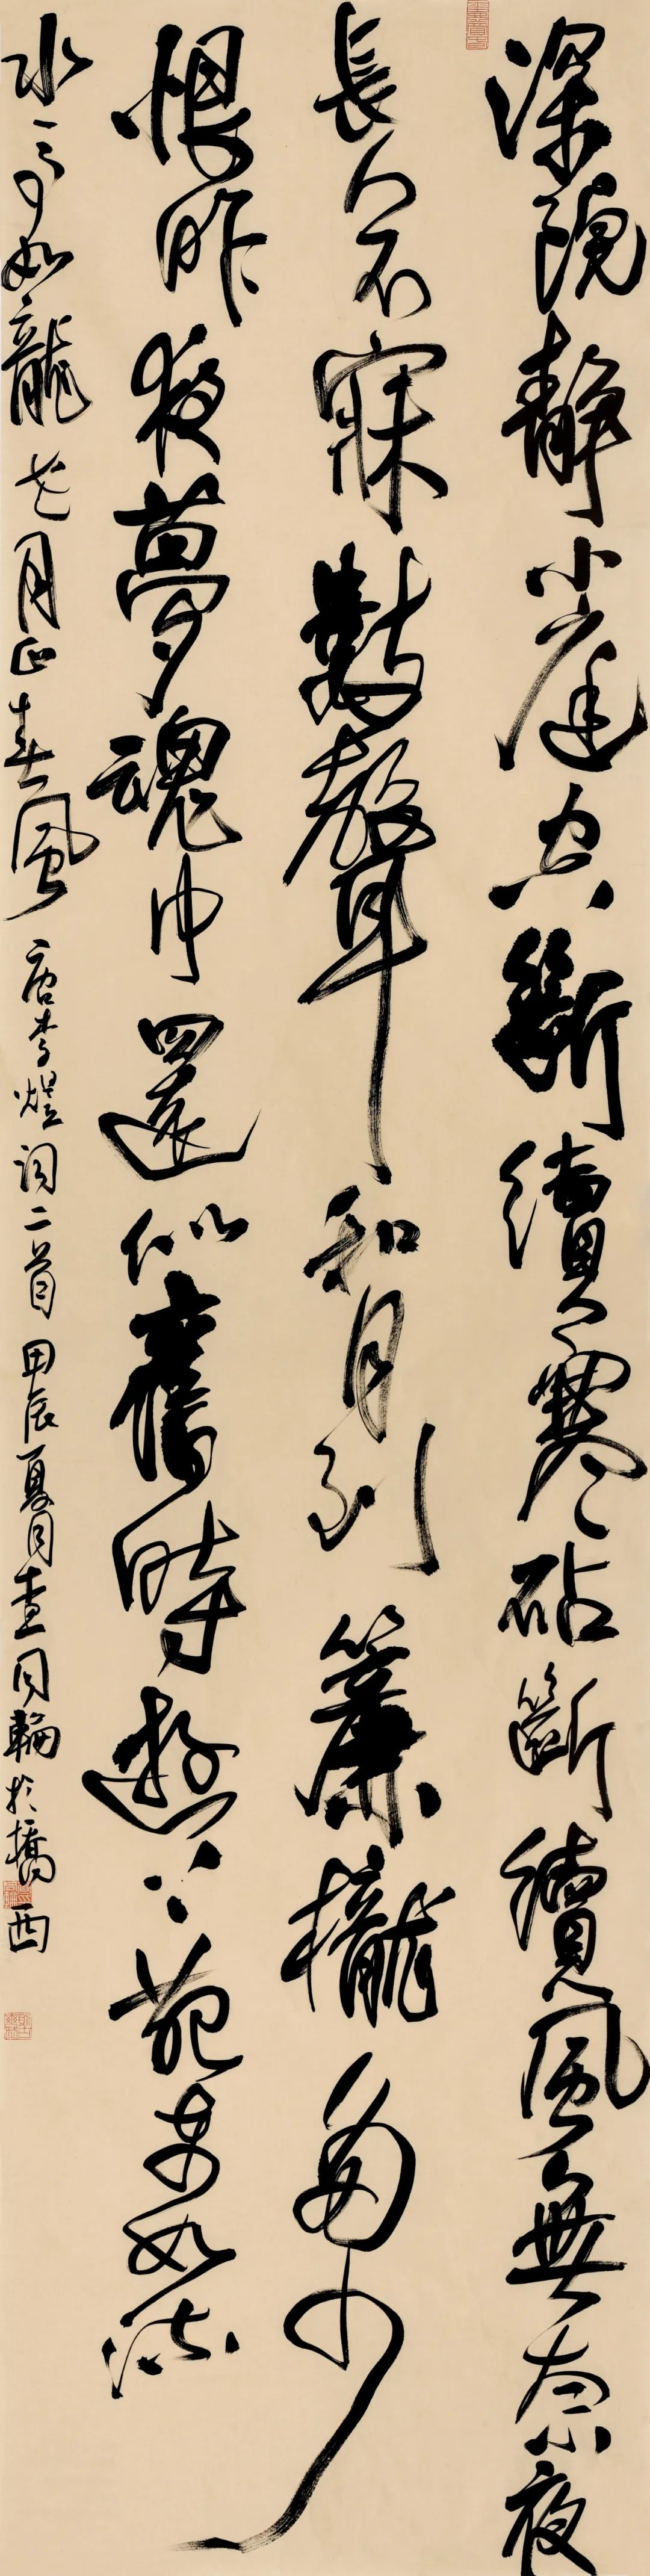 深院靜小庭空斷續寒砧斷續風無奈夜
長人不寐數聲和月到簾櫳多少
恨昨夜夢魂中還似舊時遊上苑車如流
水馬如龍花月正春風 唐李煜詞二首 甲辰夏月查同輪於橋西